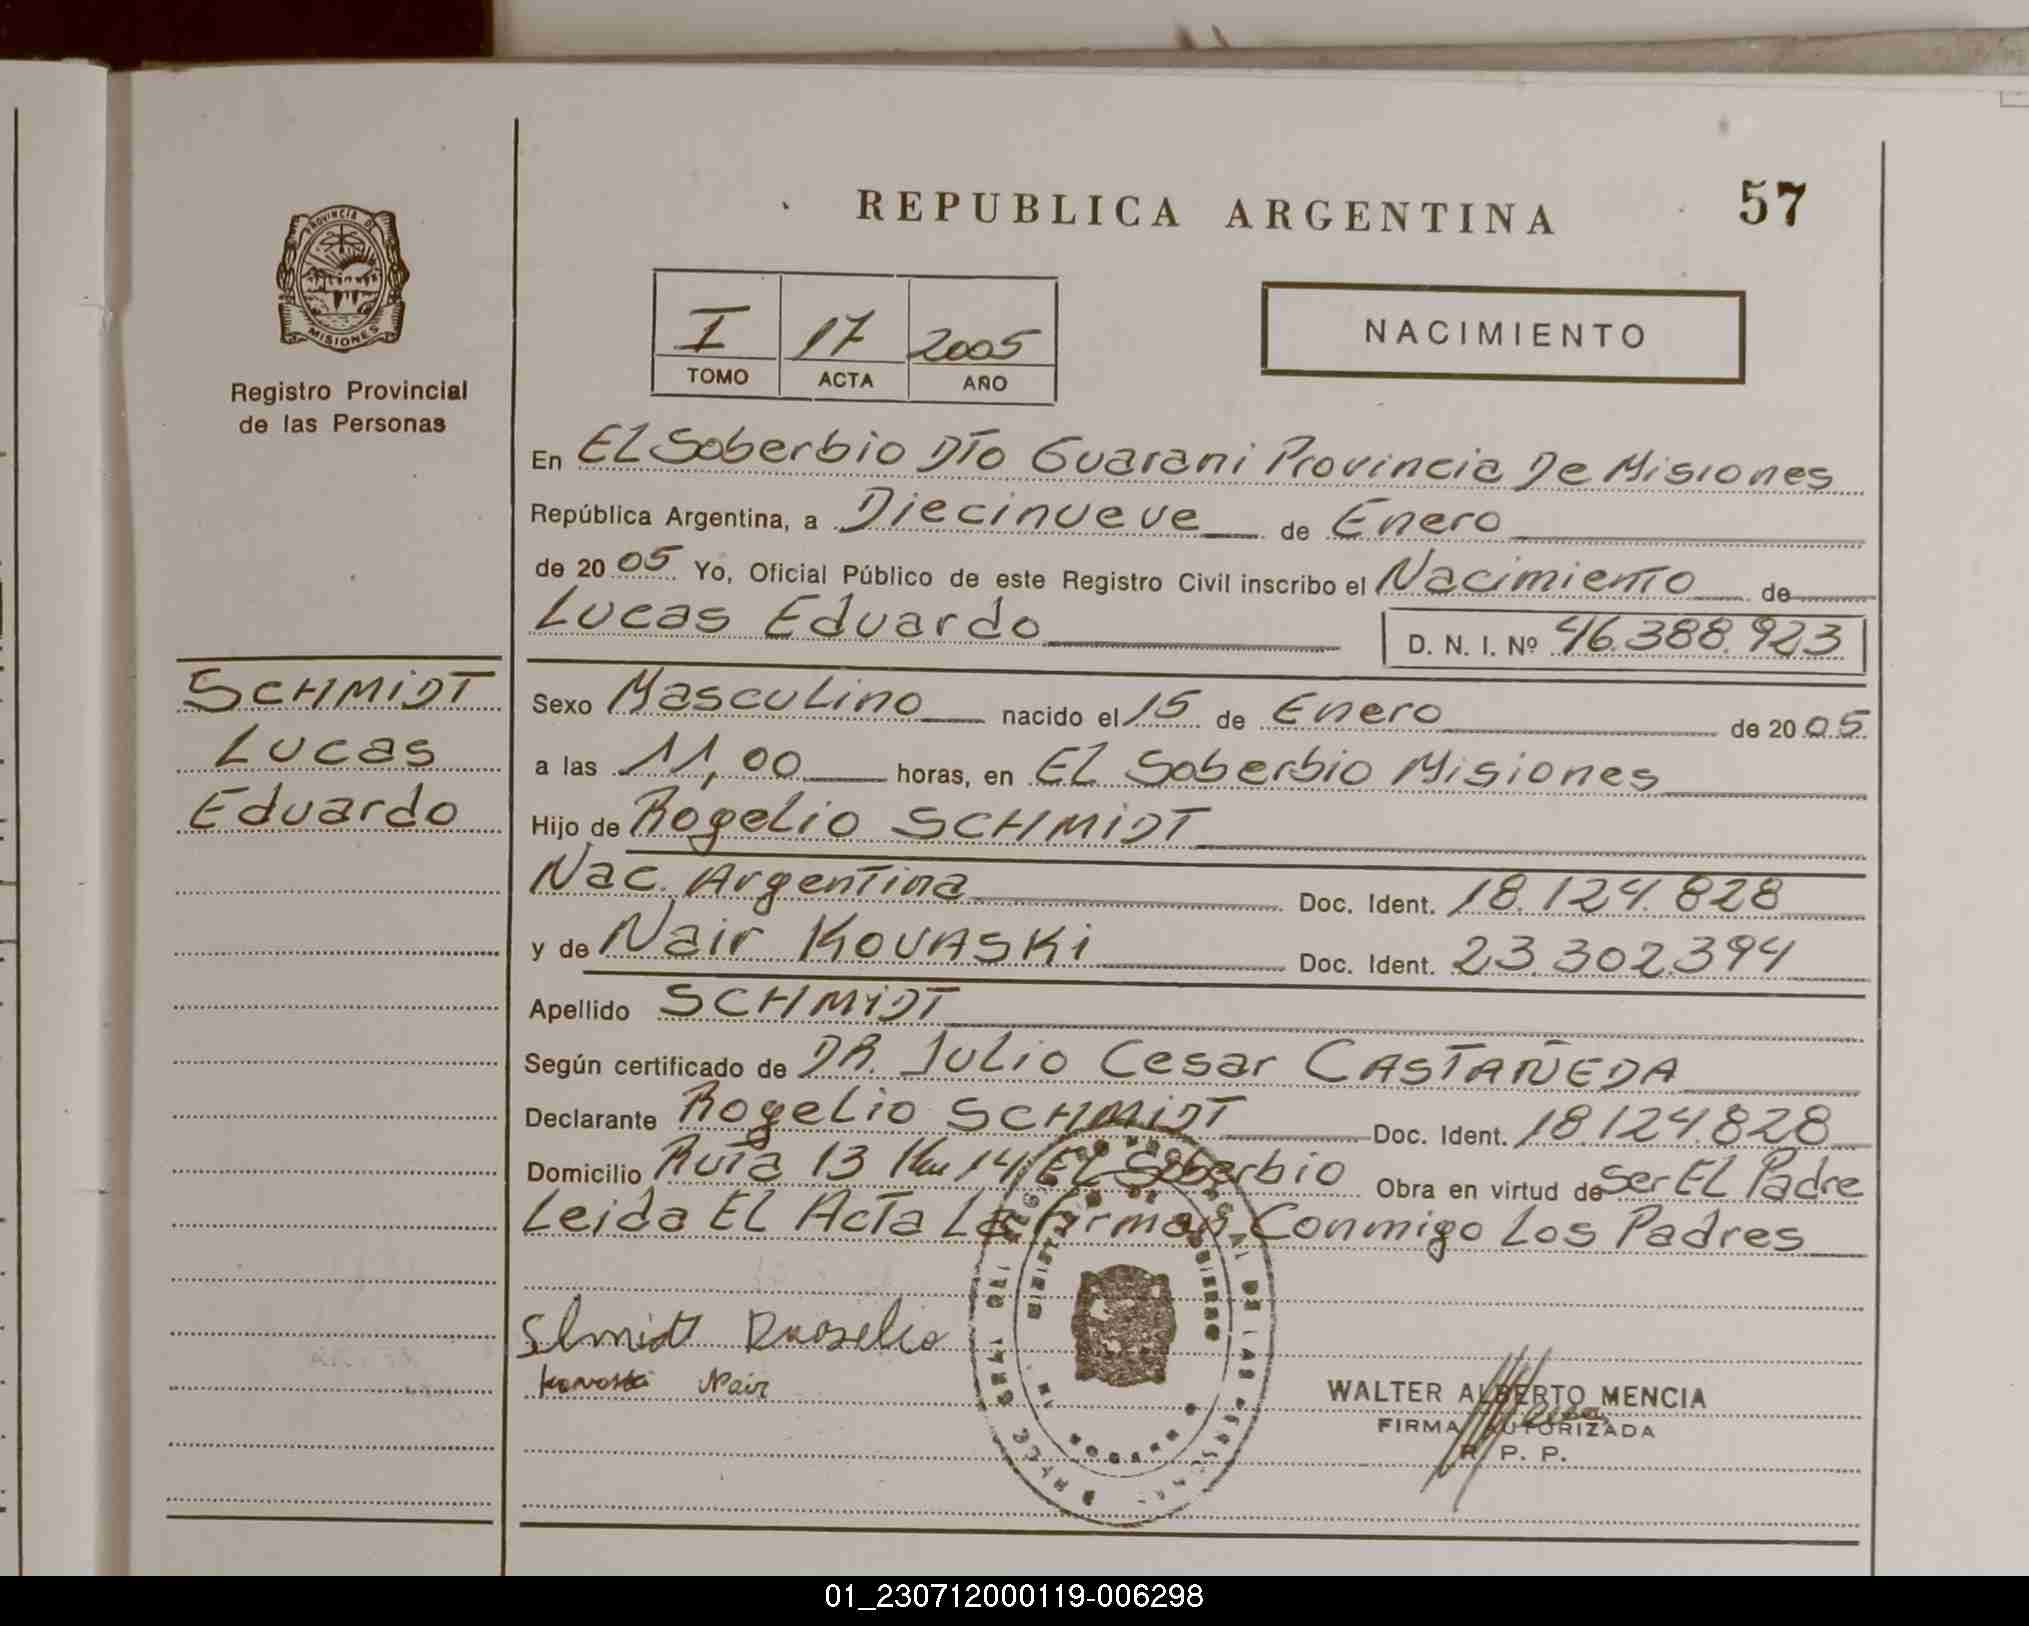 REPUBLICA ARGENTINA
57
PROVINCIA DE
MISIONES
Registro Provincial
de las Personas
I 17 2005
TOMO ACTA AÑO
NACIMIENTO
En El Soberbio DTo Guarani Provincia De Misiones
República Argentina, a Diecinueve de Enero
de 2005 Yo, Oficial Público de este Registro Civil inscribo el Nacimiento de
Lucas Eduardo D. N. I. Nº 46.388.923
SCHMIDT
Lucas
Eduardo
Sexo Masculino nacido el 15 de Enero de 2005.
a las 11,00 horas, en El Soberbio Misiones
Hijo de Rogelio SCHMIDT
Nac. Argentina Doc. Ident. 18.124.828
y de Nair KOVASKi Doc. Ident. 23.302.394
Apellido SCHMIDT
Según certificado de DR. Julio Cesar CASTAÑEDA
Declarante Rogelio SCHMIDT Doc. Ident. 18.124.828
Domicilio Ruta 13 Km 14 El Soberbio Obra en virtud de Ser El Padre
Leida El Acta La Firman Conmigo Los Padres
Nair
WALTER ALBERTO MENCIA
FIRMA AUTORIZADA
R. P. P.
01_230712000119-006298